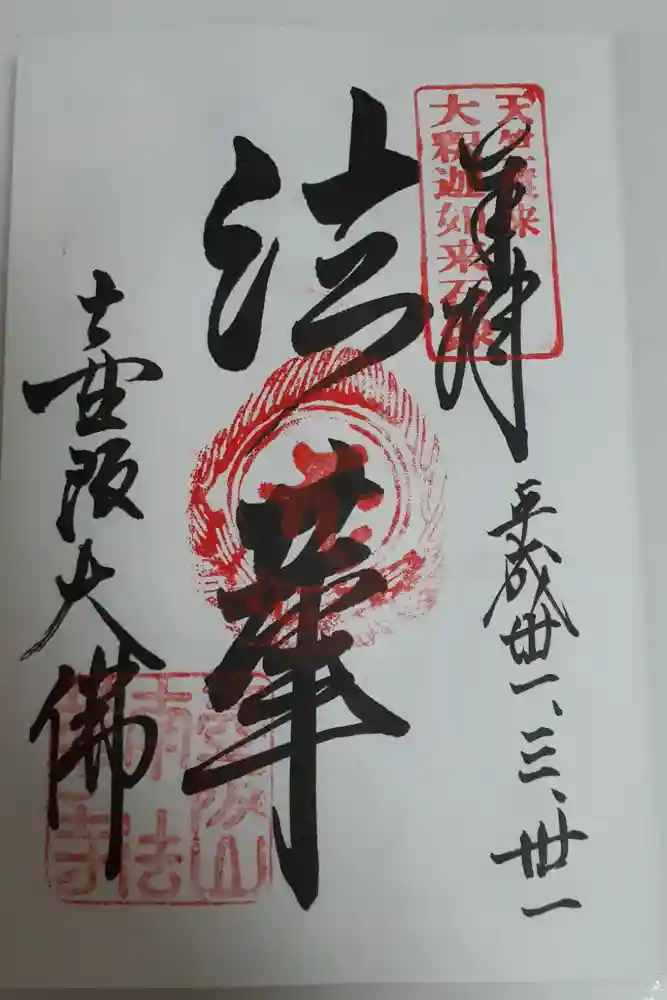 奉拝
天竺渡来
大釈迦如来石像
平成卅一、三、卅一
法華
壺阪大佛
壷阪山
南法
華寺